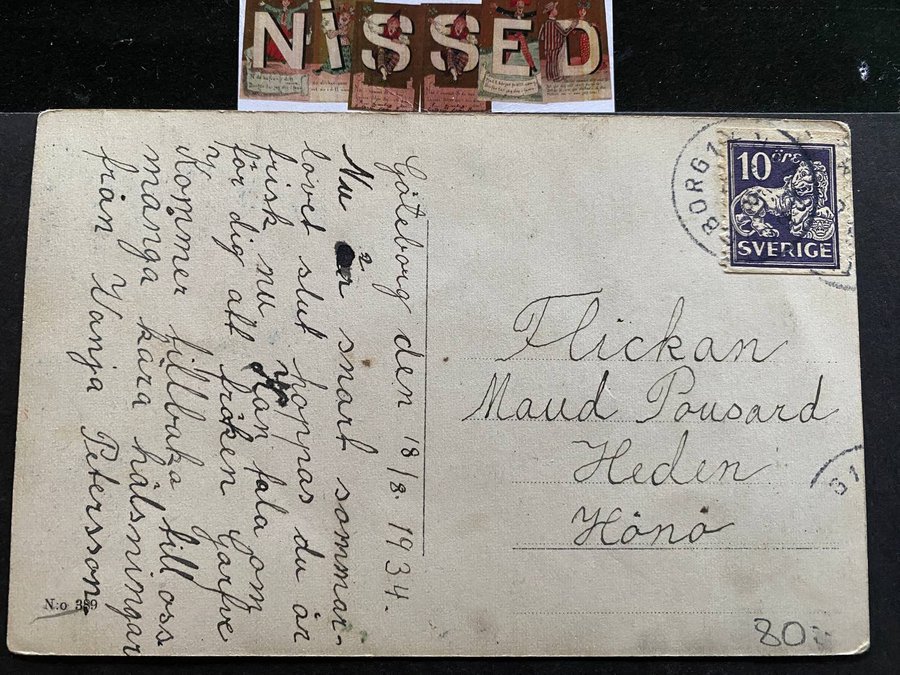 NISSED
BORG 1
10 ÖRE
SVERIGE
Göteborg den 18/8. 1934.
Nu är snart sommar-
lovet slut hoppas du är
frisk nu kan tala om
för dig att fröken Garfve
Kommer tillbaka till oss
många kära hälsningar
från Vanja Petersson.
Flickan
Maud Pousard
Heden
Hönö
N:o 389
80